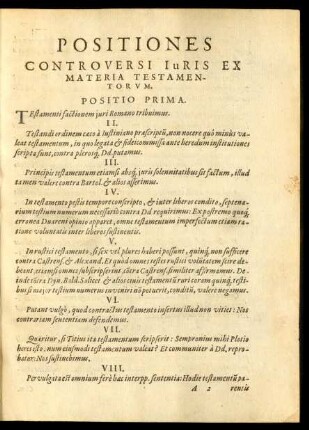 POSITIONES
CONTROVERSI IuRIS EX
MATERIA TESTAMEN-
TORVM.
POSITIO PRIMA.
TEstamenti factionem juri Romano tribuimus.
II.
Testandi ordinem caco à Iustiniano præscriptũ, non nocere quò minùs va-
leat testamentum, in quo legata & fideicommissa ante heredum institutiones
scripta sunt, contra pleroq; Dd. putamus.
III.
Principis testamentum etiamsi absq; juris solennitatibus sit factum, illud
tamen valere contra Bartol. & alios asserimus.
IV.
In testamento pestis tempore conscripto, & inter liberos condito, septena-
rium testium numerum necessariò contra Dd. requirimus: Ex postremo quoq;
erronea Duareni opinio apparet, omne testamentum imperfectum etiam
ratione voluntatis inter liberos sustinentis.
V.
In rustici testamento, si sex vel plures haberi possunt, quinq; non sufficere
contra Castrens. & Alexand. Et quòd omnes testes rustici volũtatem scire de-
beant, etiamsi omnes subscripserint cõtra Castrens. similiter affirmamus. De-
inde cõtra Iõan. Bold. Salicet. & alios cenis testamentũ rari coram quinq; testi-
bus si major testium numerus invenire nõ poterit, conditũ, valere negamus.
VI.
Putant vulgò, quod contractus testamento insertus illud non vitiet: Nos
contrariam sententiam defendimus.
VII.
Quæritur, si Titius ita testamentum scripserit: Sempronius mihi Plotia
heres esto, num ejusmodi testamentum valeat? Et communiter à Dd. repro-
batur: Nos sustinebimus.
VIII.
Pervulgata est omnium ferè hac interpp. sententia: Hodie testamentũ pa-
A 2 rentis